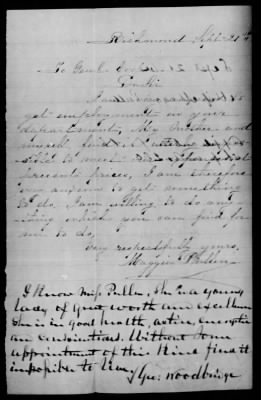 Richmond, Sept. 21st
Dear Sir
I am
to
get employment in your
department. My mother and
myself find it
sible to meet
present prices, I am therefore
very anxious to get something
to do. I am willing to do any
thing which you can find for
me to do.
Very respectfully yours,
Maggie Pullen
I Know Miss Pullen, She is a young
lady of great worth and excellence
She is in good health, active, energetic
and conscientious. Without some
appointment of this Kind find it
impossible to live
Geo: Woodbridge